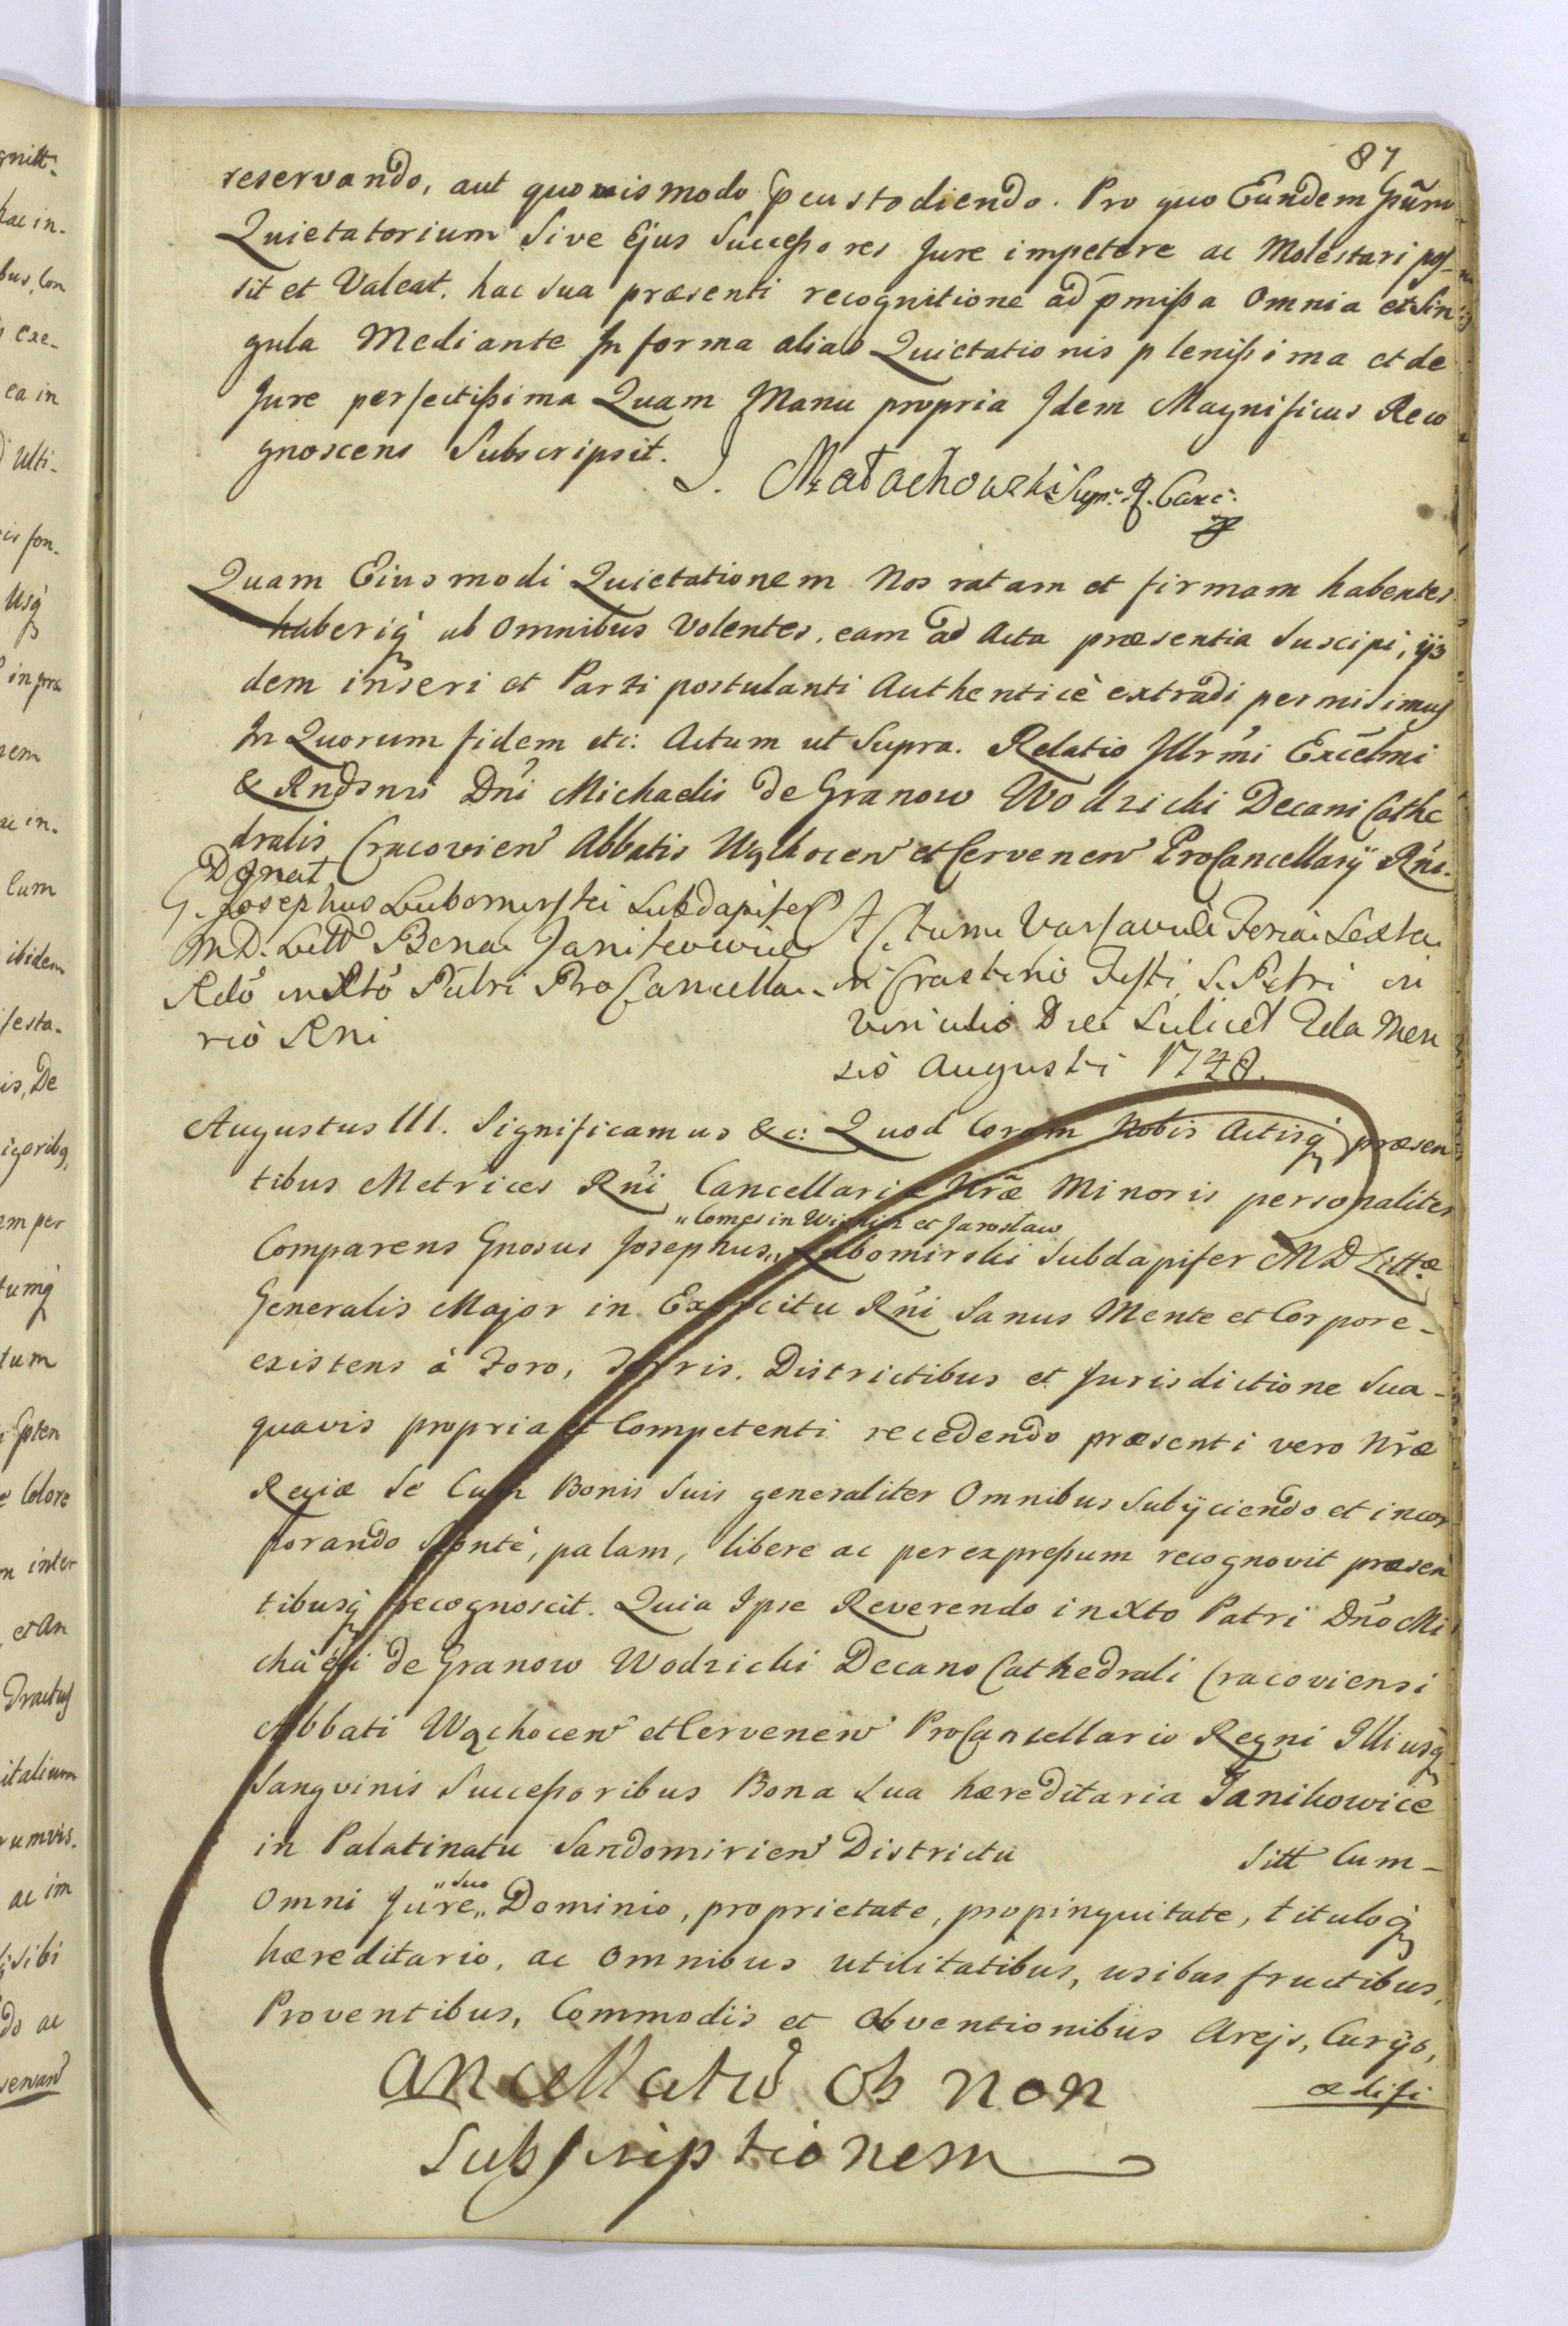 87
reservando, aut quovismodo pcustodiendo. Pro quo Eundem Gsum
Quietatorium Sive Ejus Successores Jure impetere ac Molestari pos-
sit et Valeat. hac sua præsenti recognitione ad pmissa Omnia et Sin
gula Mediante In forma alias Quietationis plenissima et de
Jure perfectissima Quam Manu propria Idem Magnificus Reco
gnoscens Subscripsit.
J. Małachowski Sup: R. Canc:
Quam Eiusmodi Quietationem Nos ratam et firmam habentes
haberiq ab Omnibus Volentes, eam ad Acta præsentia Suscipi, ijs
dem inseri et Parti postulanti Authenticè extradi permisimus
In Quorum fidem etc: Actum ut Supra. Relatio Illrmi Excelmi
& Rndsmi Dni Michaelis de Granow Wodzicki Decani Cathe
dralis Cracovien Abbatis Wąchocen et Cervenen ProCancellarij Rni.
Donat
G. Josephus Lubomirski Subdapifer
M.D. Litt Bona Janikowice
Rdo in Xto Patri ProCancella-
rio Rni
Actum Varsaviæ Feria Sexta
in Crastino Festi S. Petri in
vinculis Die Scilicet 2da Men
sis Augusti 1748.
Augustus III. Significamus &c: Quod Coram Nobis Actisq præsen
tibus Metrices Rni Cancellariæ Nræ Minoris personaliter
"Comes in Wiśnicz et Jarosław
Comparens Gnosus Josephus,, Lubomirski Subdapifer MD Littæ
Generalis Major in Exercitu Rni Sanus Mente et Corpore-
existens à Foro, Terris, Districtibus et Jurisdictione Sua-
quavis propria et Competenti recedendo præsenti vero Nræ
Regiæ Se Cum Bonis Suis generaliter Omnibus Subijciendo et incor
porando Spontè, palam, libere ac per expressum recognovit præsen
tibusq recognoscit. Quia Ipse Reverendo in Xto Patri Dno Mi
chaeli de Granow Wodzicki Decano Cathedrali Cracoviensi
Abbati Wąchocen et Cervenen ProCancellario Regni Illiusq
Sangvinis Successoribus Bona Sua hæreditaria Janikowice
in Palatinatu Sandomirien Districtu Sitt Cum-
"suo
Omni Jure,, Dominio, proprietate, propinquitate, tituloq
hæreditario, ac Omnibus utilitatibus, usibus fructibus,
Proventibus, Commodis et Obventionibus Arejs, Curijs,
ædifi
Cancellatum ob non
subscriptionem